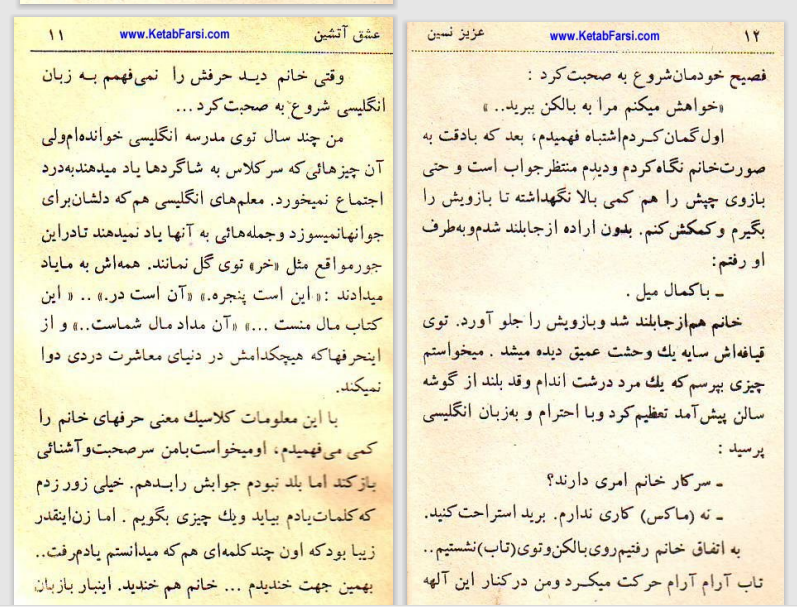 ۱۱ www.KetabFarsi.com عشق آتشین
وقتی خانم دیـد حرفش را نمی‌فهمم بـه زبان
انگلیسی شروع به صحبت‌کرد ...
من چند سال توی مدرسه انگلیسی خوانده‌ام‌ولی
آن چیزهائی‌که سرکلاس به شاگردها یاد میدهندبه‌درد
اجتماع نمیخورد. معلم‌های انگلیسی هم‌که دلشان‌برای
جوانهانمیسوزد وجمله‌هائی به آنها یاد نمیدهند تادراین
جورمواقع مثل «خر» توی گل نمانند. همه‌اش به مایاد
میدادند : « این است پنجره.» «آن است در.» .. « این
کتاب مال منست ...» «آن مداد مال شماست..» و از
اینحرفهاکه هیچکدامش در دنیای معاشرت دردی دوا
نمیکند.
با این معلومات کلاسیك معنی حرفهای خانم را
کمی می‌فهمیدم، اومیخواست‌بامن سرصحبت‌وآشنائی
بازکند اما بلد نبودم جوابش رابـدهم. خیلی زور زدم
که‌کلمات‌یادم بیاید ویك چیزی بگویم . اما زن‌اینقدر
زیبا بودکه اون چندکلمه‌ای هم‌که میدانستم یادم‌رفت..
بهمین جهت خندیدم ... خانم هم خندید. اینبار بازبان
عزیز نسین www.KetabFarsi.com ۱۲
فصیح خودمان‌شروع به صحبت‌کرد :
«خواهش میکنم مرا به بالکن ببرید.. »
اول‌گمان‌کـردم‌اشتباه فهمیدم، بعد که بادقت به
صورت‌خانم نگاه‌کردم ودیدم منتظرجواب است و حتی
بازوی چپش را هم کمی بالا نگهداشته تـا بازویش را
بگیرم وکمکش‌کنم. بدون اراده ازجابلند شدم‌وبه‌طرف
او رفتم:
ـ باکمال میل .
خانم هم‌ازجابلند شد وبازویش را جلو آورد. توی
قیافه‌اش سایه یك وحشت عمیق دیده میشد . میخواستم
چیزی بپرسم‌که یك مرد درشت اندام وقد بلند از گوشه
سالن پیش‌آمد تعظیم‌کرد وبا احترام و به‌زبان انگلیسی
پرسید :
ـ سرکار خانم امری دارند؟
ـ نه (ماکس) کاری ندارم. برید استراحت‌کنید.
به اتفاق خانم رفتیم‌روی‌بالکن‌وتوی(تاب)نشستیم..
تاب آرام آرام حرکت میکـرد ومن درکنار این آلهه